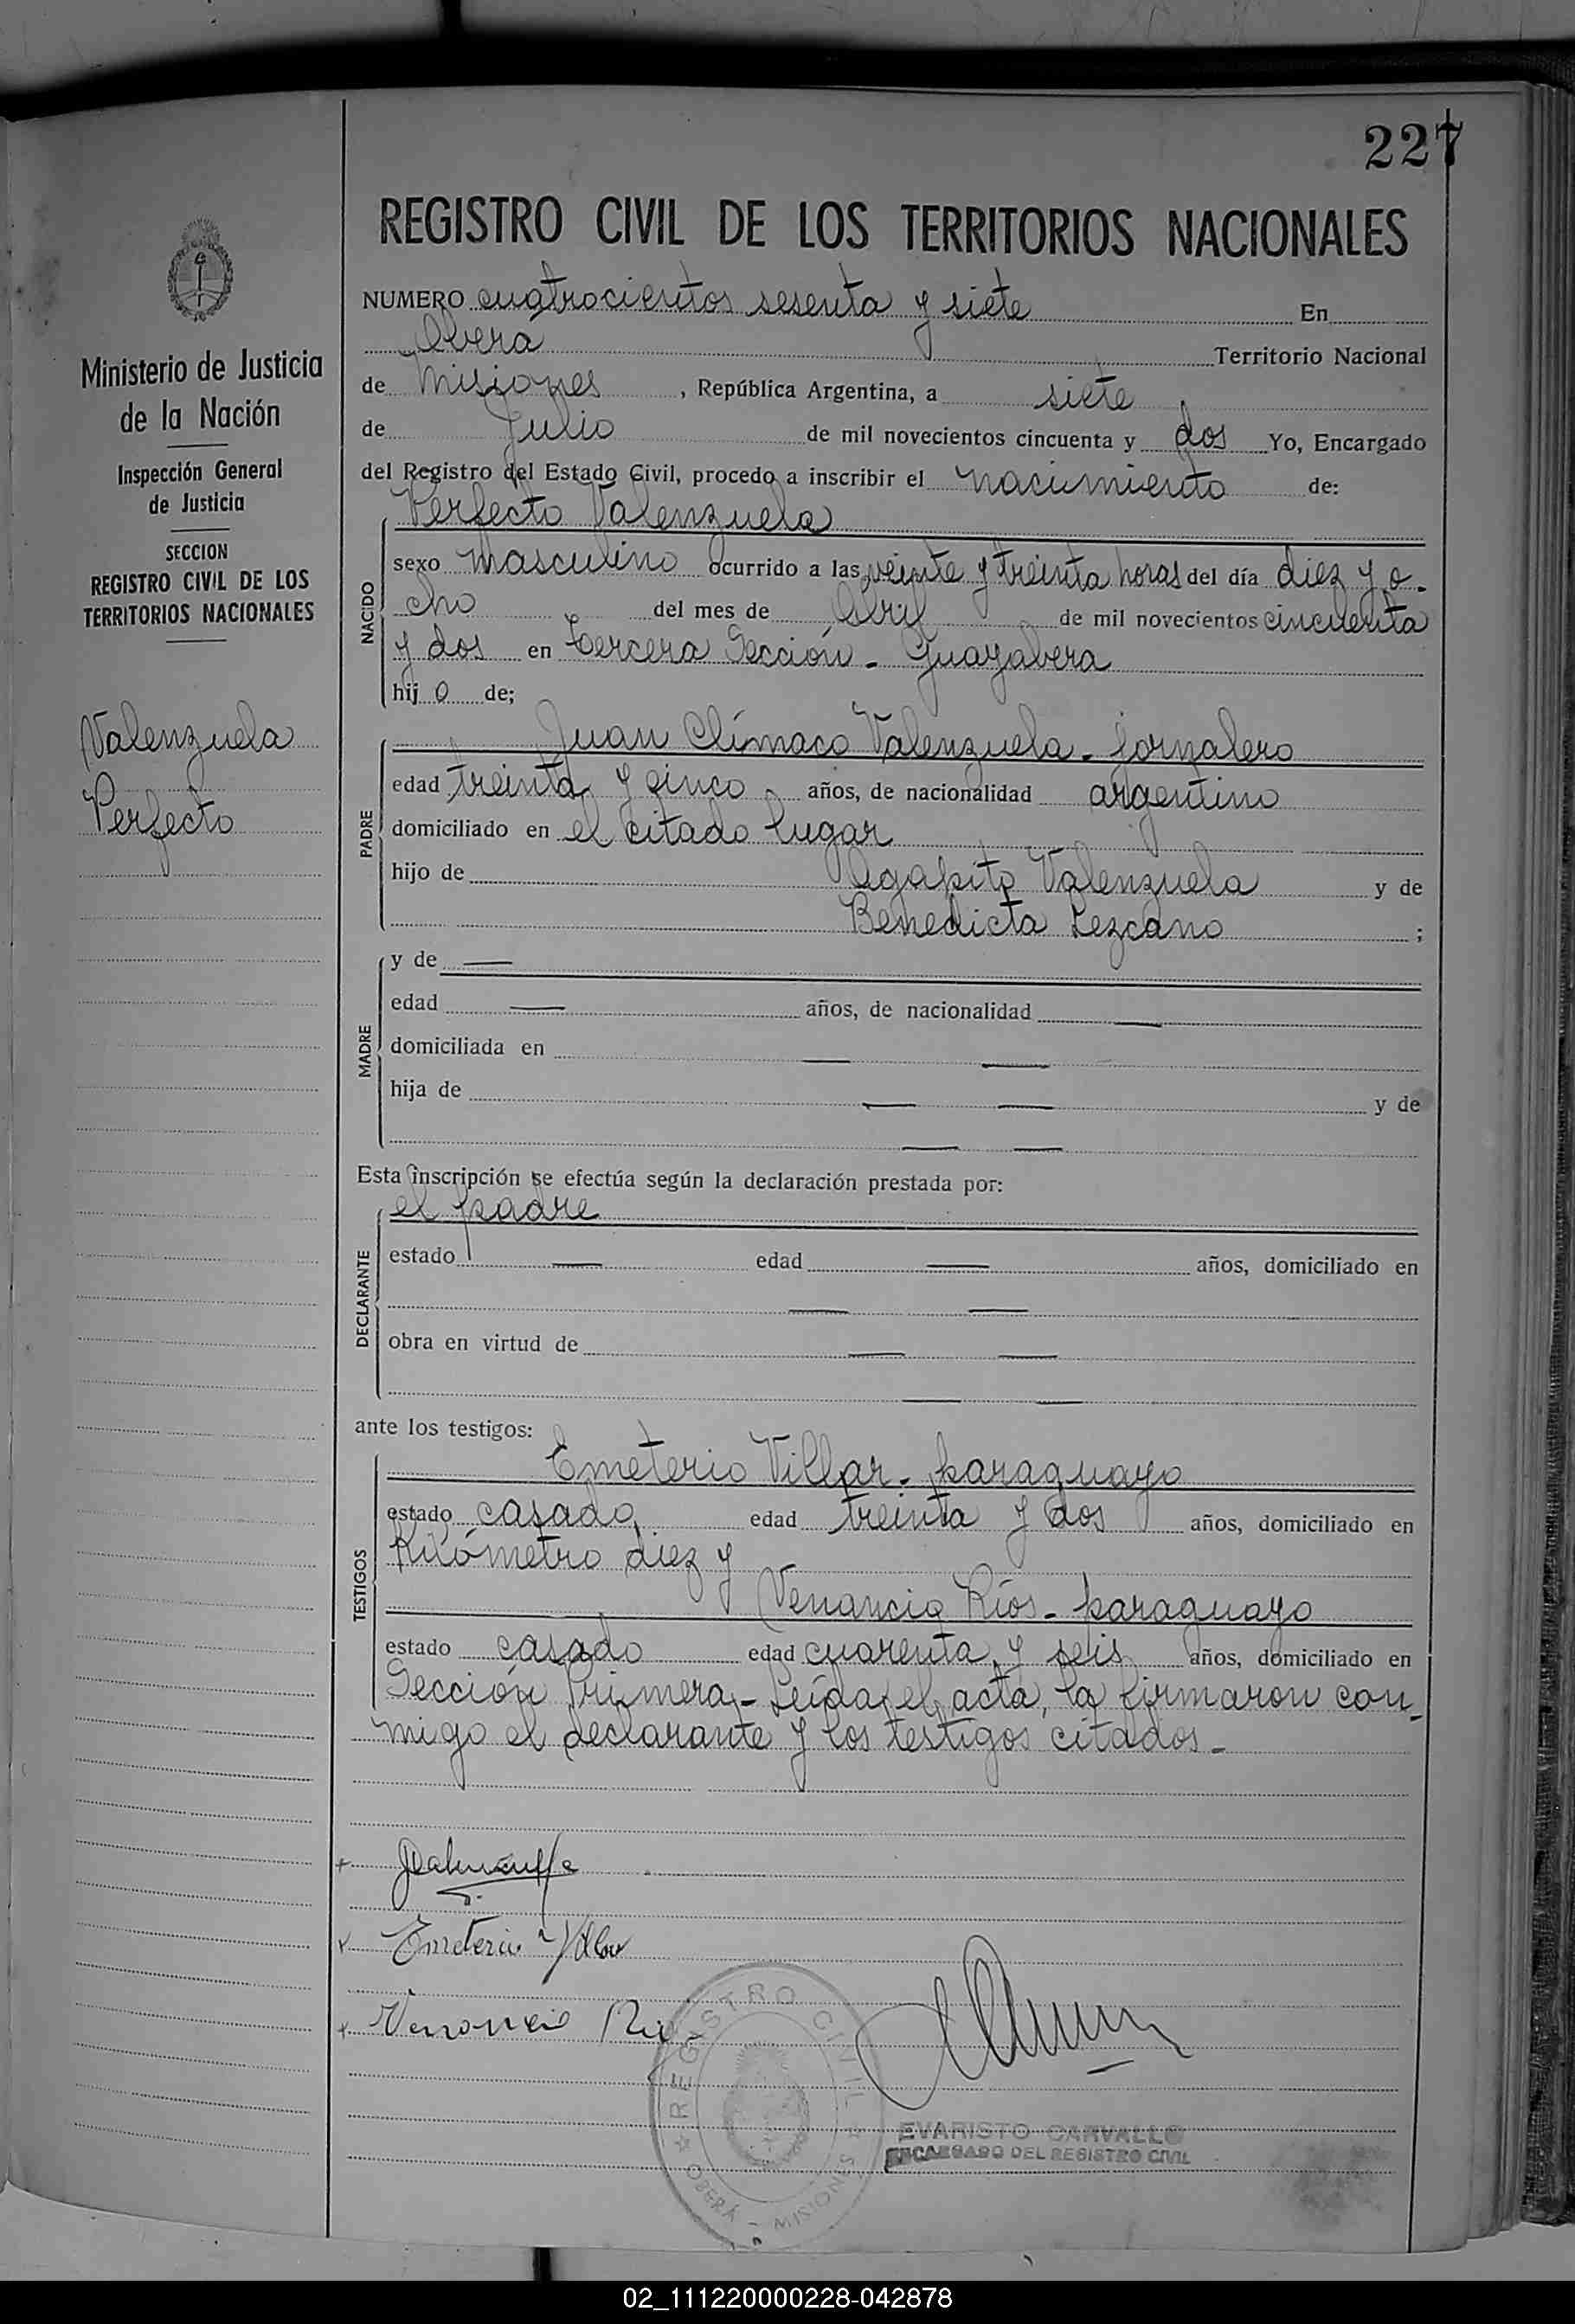 227
REGISTRO CIVIL DE LOS TERRITORIOS NACIONALES
NUMERO cuatrocientos sesenta y siete En
Oberá Territorio Nacional
de Misiones, República Argentina, a siete
de Julio de mil novecientos cincuenta y dos Yo, Encargado
del Registro del Estado Civil, procedo a inscribir el nacimiento de:
Perfecto Valenzuela
NACIDO
sexo masculino ocurrido a las veinte y treinta horas del día diez y o-
cho del mes de Abril de mil novecientos cincuenta
y dos en tercera Sección - Guayabera
hij o de;
Juan Clímaco Valenzuela - jornalero
PADRE
edad treinta y cinco años, de nacionalidad argentino
domiciliado en el citado lugar
hijo de Agapito Valenzuela y de
Benedicta Lezcano ;
MADRE
y de —
edad — años, de nacionalidad —
domiciliada en — —
hija de — — y de
— —
Esta inscripción se efectúa según la declaración prestada por:
el padre
DECLARANTE
estado — edad — años, domiciliado en
— —
obra en virtud de — —
— —
ante los testigos:
Emeterio Villar - paraguayo
TESTIGOS
estado casado edad treinta y dos años, domiciliado en
Kilómetro diez y
Venancio Ríos - paraguayo
estado casado edad cuarenta y seis años, domiciliado en
Sección Primera - Leída el acta, la firmaron con-
migo el declarante y los testigos citados -
Emeterio Villar
Venancio Rios
REGISTRO CIVIL
OBERÁ - MISIONES
EVARISTO CARVALLO
ENCARGADO DEL REGISTRO CIVIL
Ministerio de Justicia
de la Nación
Inspección General
de Justicia
SECCION
REGISTRO CIVIL DE LOS
TERRITORIOS NACIONALES
Valenzuela
Perfecto
02_111220000228-042878